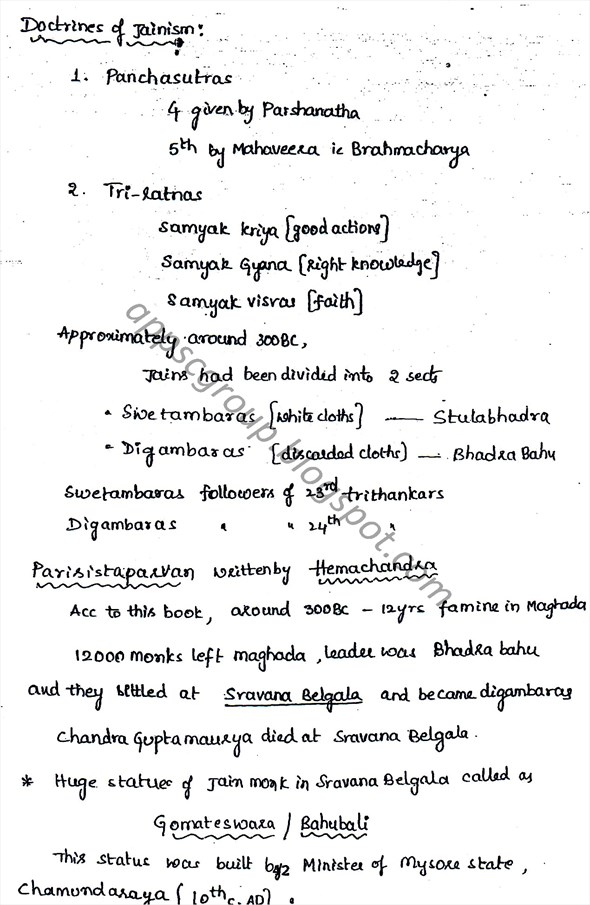 Doctrines of Jainism:
1. Panchasutras
4 given by Parshanatha
5th by Mahaveera ie Brahmacharya
2. Tri-ratnas
Samyak kriya [good actions]
Samyak Gyana [Right knowledge]
Samyak visvas [faith]
Approximately around 300BC,
Jains had been divided into 2 sects
• Swetambaras [white cloths] — Stulabhadra
• Digambaras [discarded cloths] — Bhadra Bahu
Swetambaras followers of 23rd trithankars
Digambaras " " 24th "
Parisistaparvan written by Hemachandra
Acc to this book, around 300BC - 12yrs famine in Maghada
12000 monks left maghada, leader was Bhadra bahu
and they settled at Sravana Belgala and became digambaras
Chandra Guptamaurya died at Sravana Belgala.
* Huge statue of Jain monk in Sravana Belgala called as
Gomateswara / Bahubali
This status was built by Minister of Mysore state,
Chamundaraya (10th c. AD).
appscgroup.blogspot.com